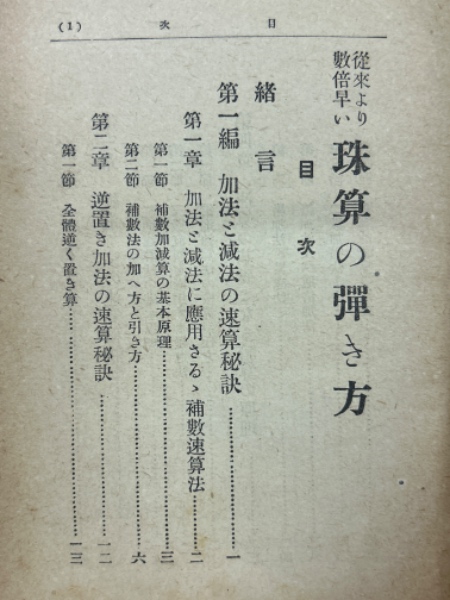 目次 (1)
從來より
數倍早い
珠算の彈き方
目次
緒言
第一編 加法と減法の速算秘訣……一
第一章 加法と減法に應用さるゝ補數速算法……二
第一節 補數加減算の基本原理……三
第二節 補數法の加へ方と引き方……六
第二章 逆置き加法の速算秘訣……一二
第一節 全體逆く置き算……一三